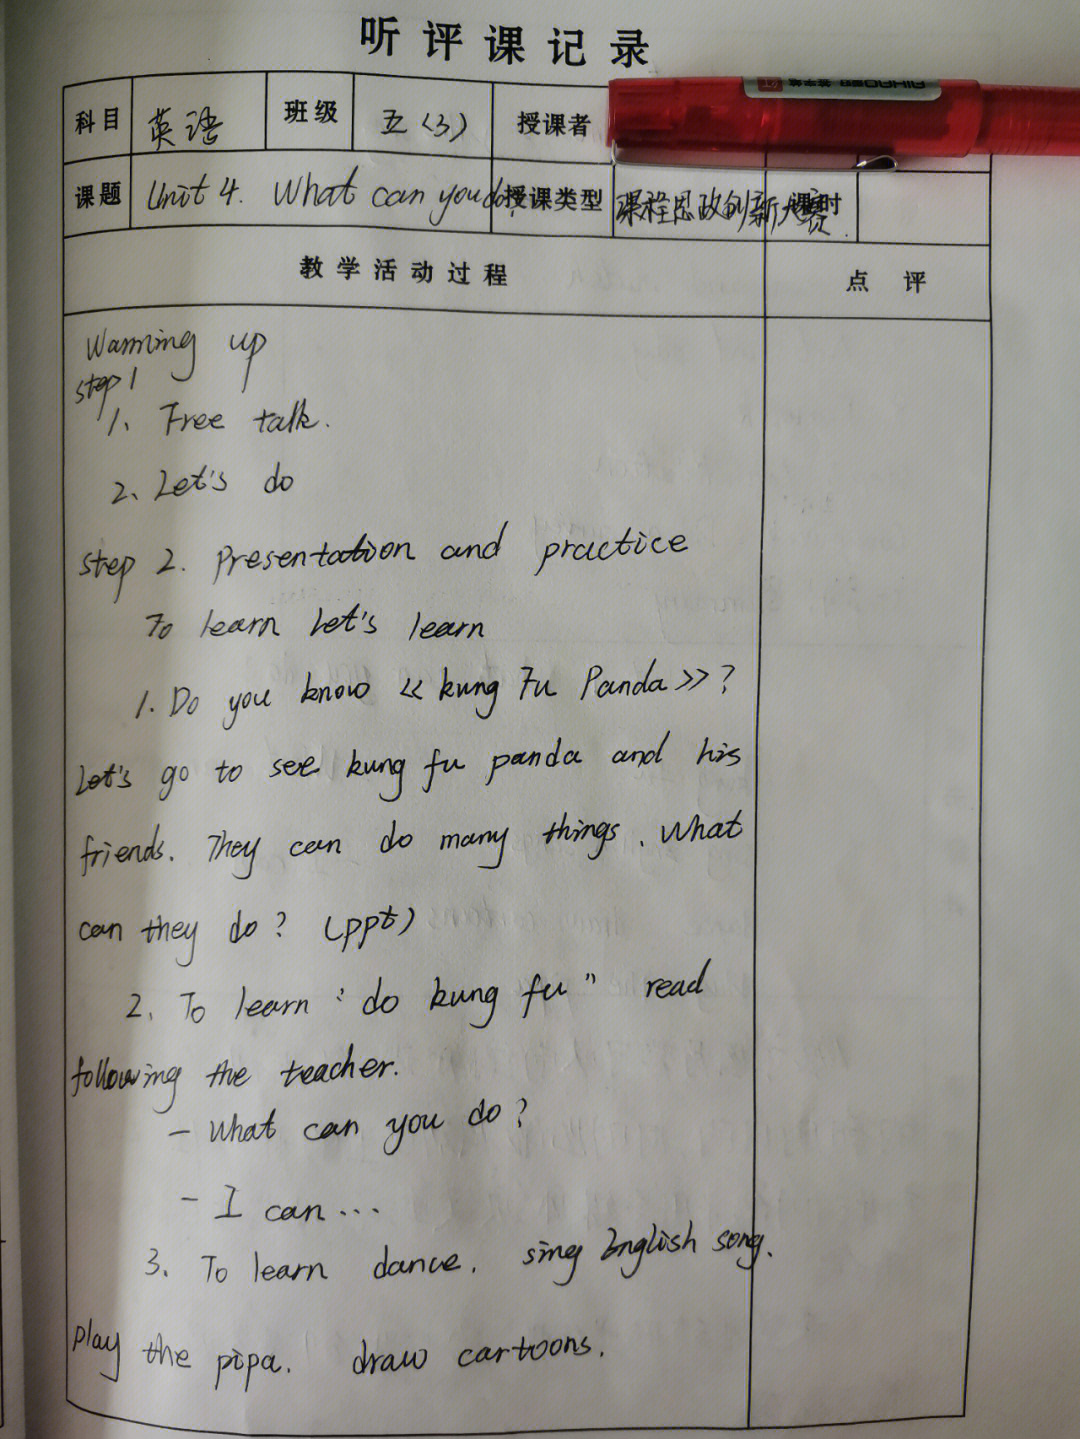 听评课记录
科目 英语 班级 五(3) 授课者
课题 Unit 4. What can you do? 授课类型 课程思政创新大赛. 课时
教学活动过程 点评
Warming up
step 1
1、Free talk.
2、Let's do
step 2. Presentation and practice
To learn Let's learn
1. Do you know 《kung Fu Panda》?
Let's go to see kung fu panda and his
friends. They can do many things. What
can they do? (ppt)
2、To learn "do kung fu" read
following the teacher.
- What can you do?
- I can...
3、To learn dance. sing English song.
play the pipa. draw cartoons.